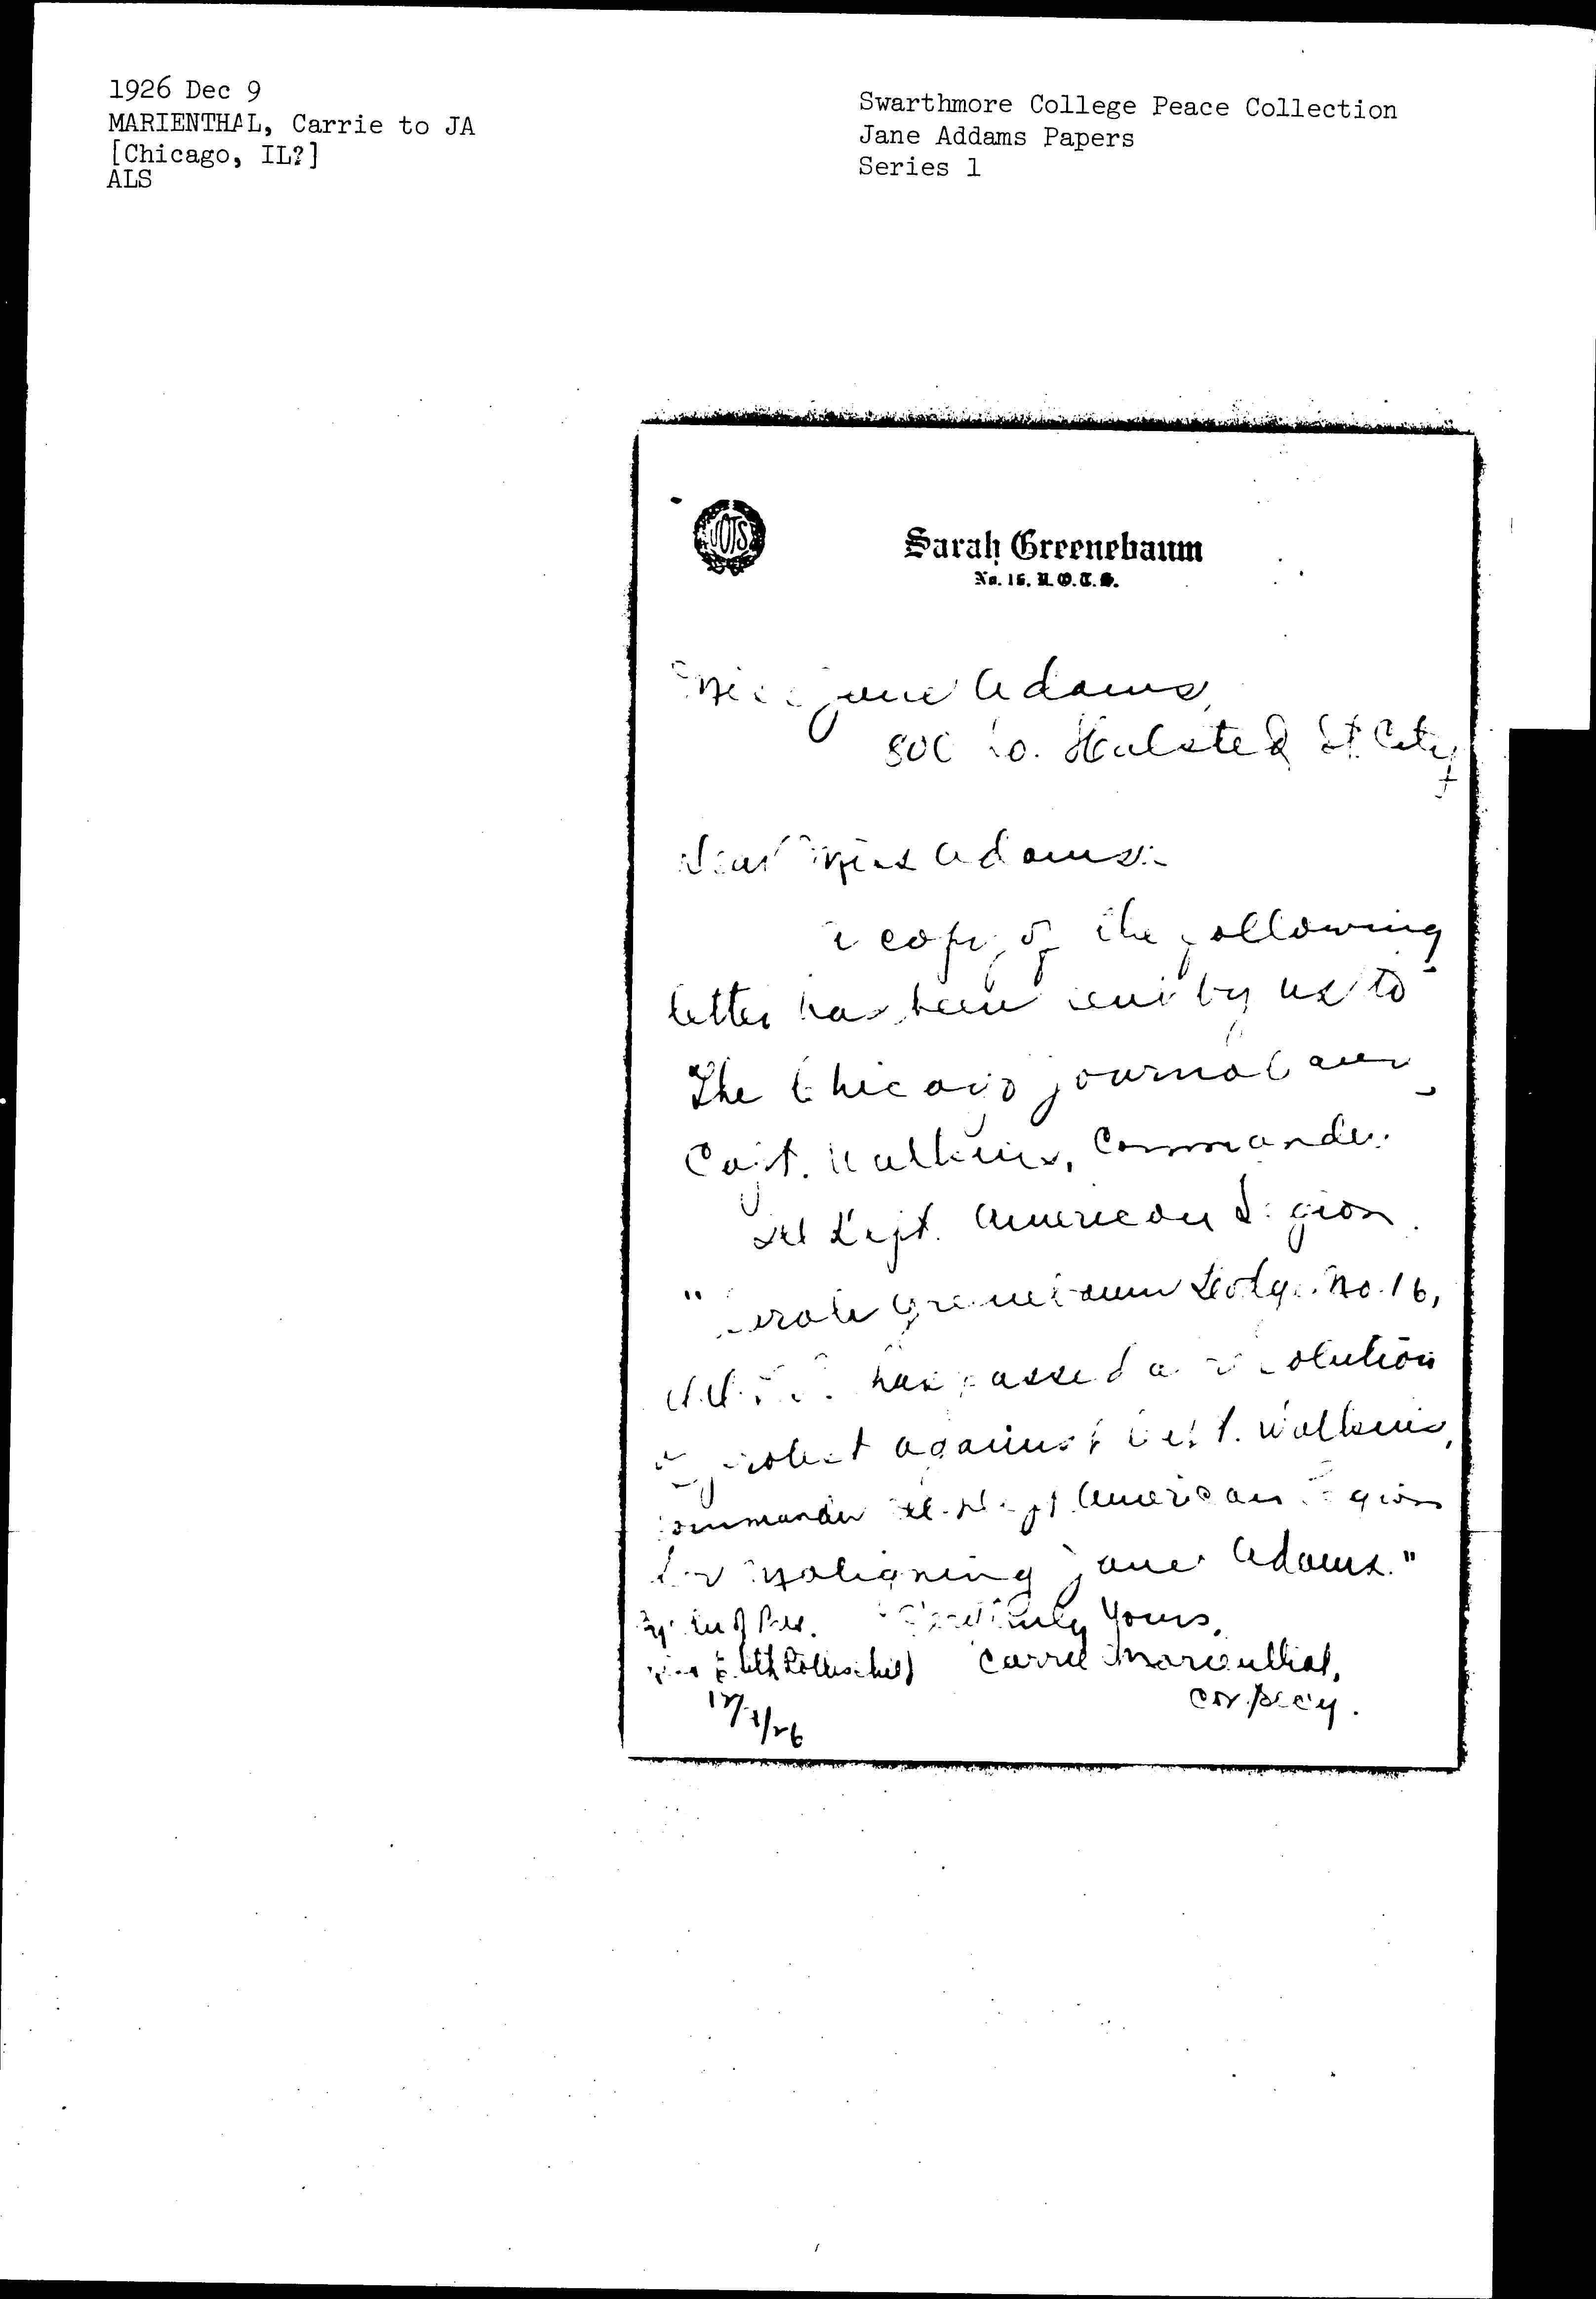 1926 Dec 9
MARIENTHAL, Carrie to JA
[Chicago, IL?]
ALS
Swarthmore College Peace Collection
Jane Addams Papers
Series 1
UOTS
Sarah Greenebaum
No. 16. U.O.T.S.
Miss Jane Adams,
800 So. Halsted St. City
Dear Miss Adams:-
A copy of the following
letter has been sent by us to
The Chicago Journal and
Capt. Watkins, Commander
Ill Dept. American Legion.
"Sarah Greenebaum Lodge No. 16,
U.O.T.S. has passed a resolution
of protest against Capt. Watkins,
Commander Ill. Dept American Legion
for maligning Jane Adams."
By Pres. Yours,
Carrie Marienthal,
Cor. Sec'y.